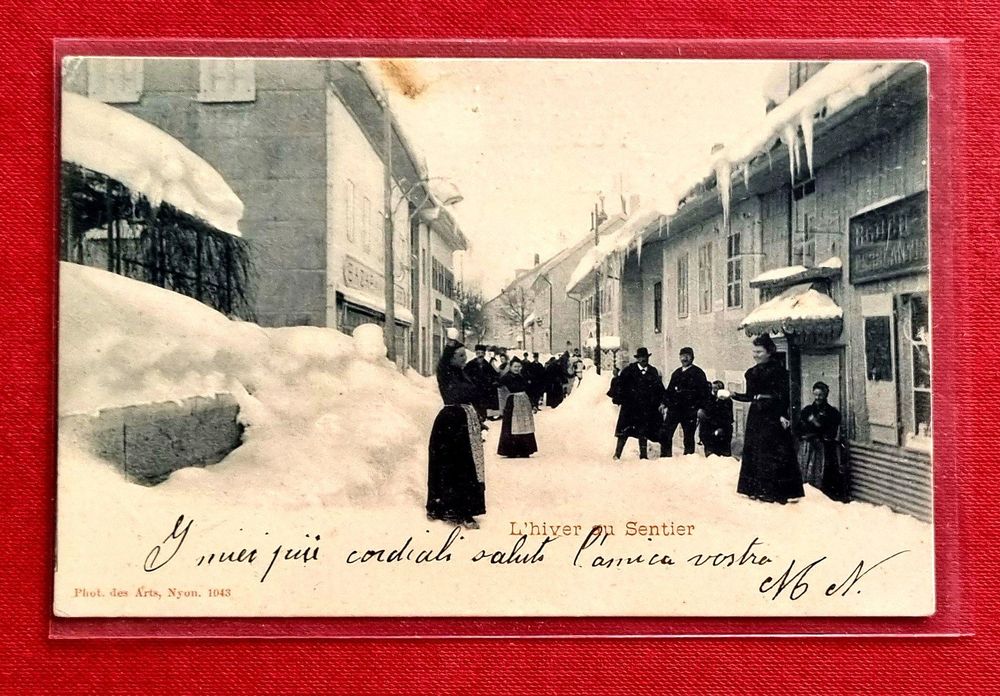 BAZAR
L'hiver au Sentier
I miei più cordiali saluti l'amica vostra
M N.
Phot. des Arts, Nyon. 1043